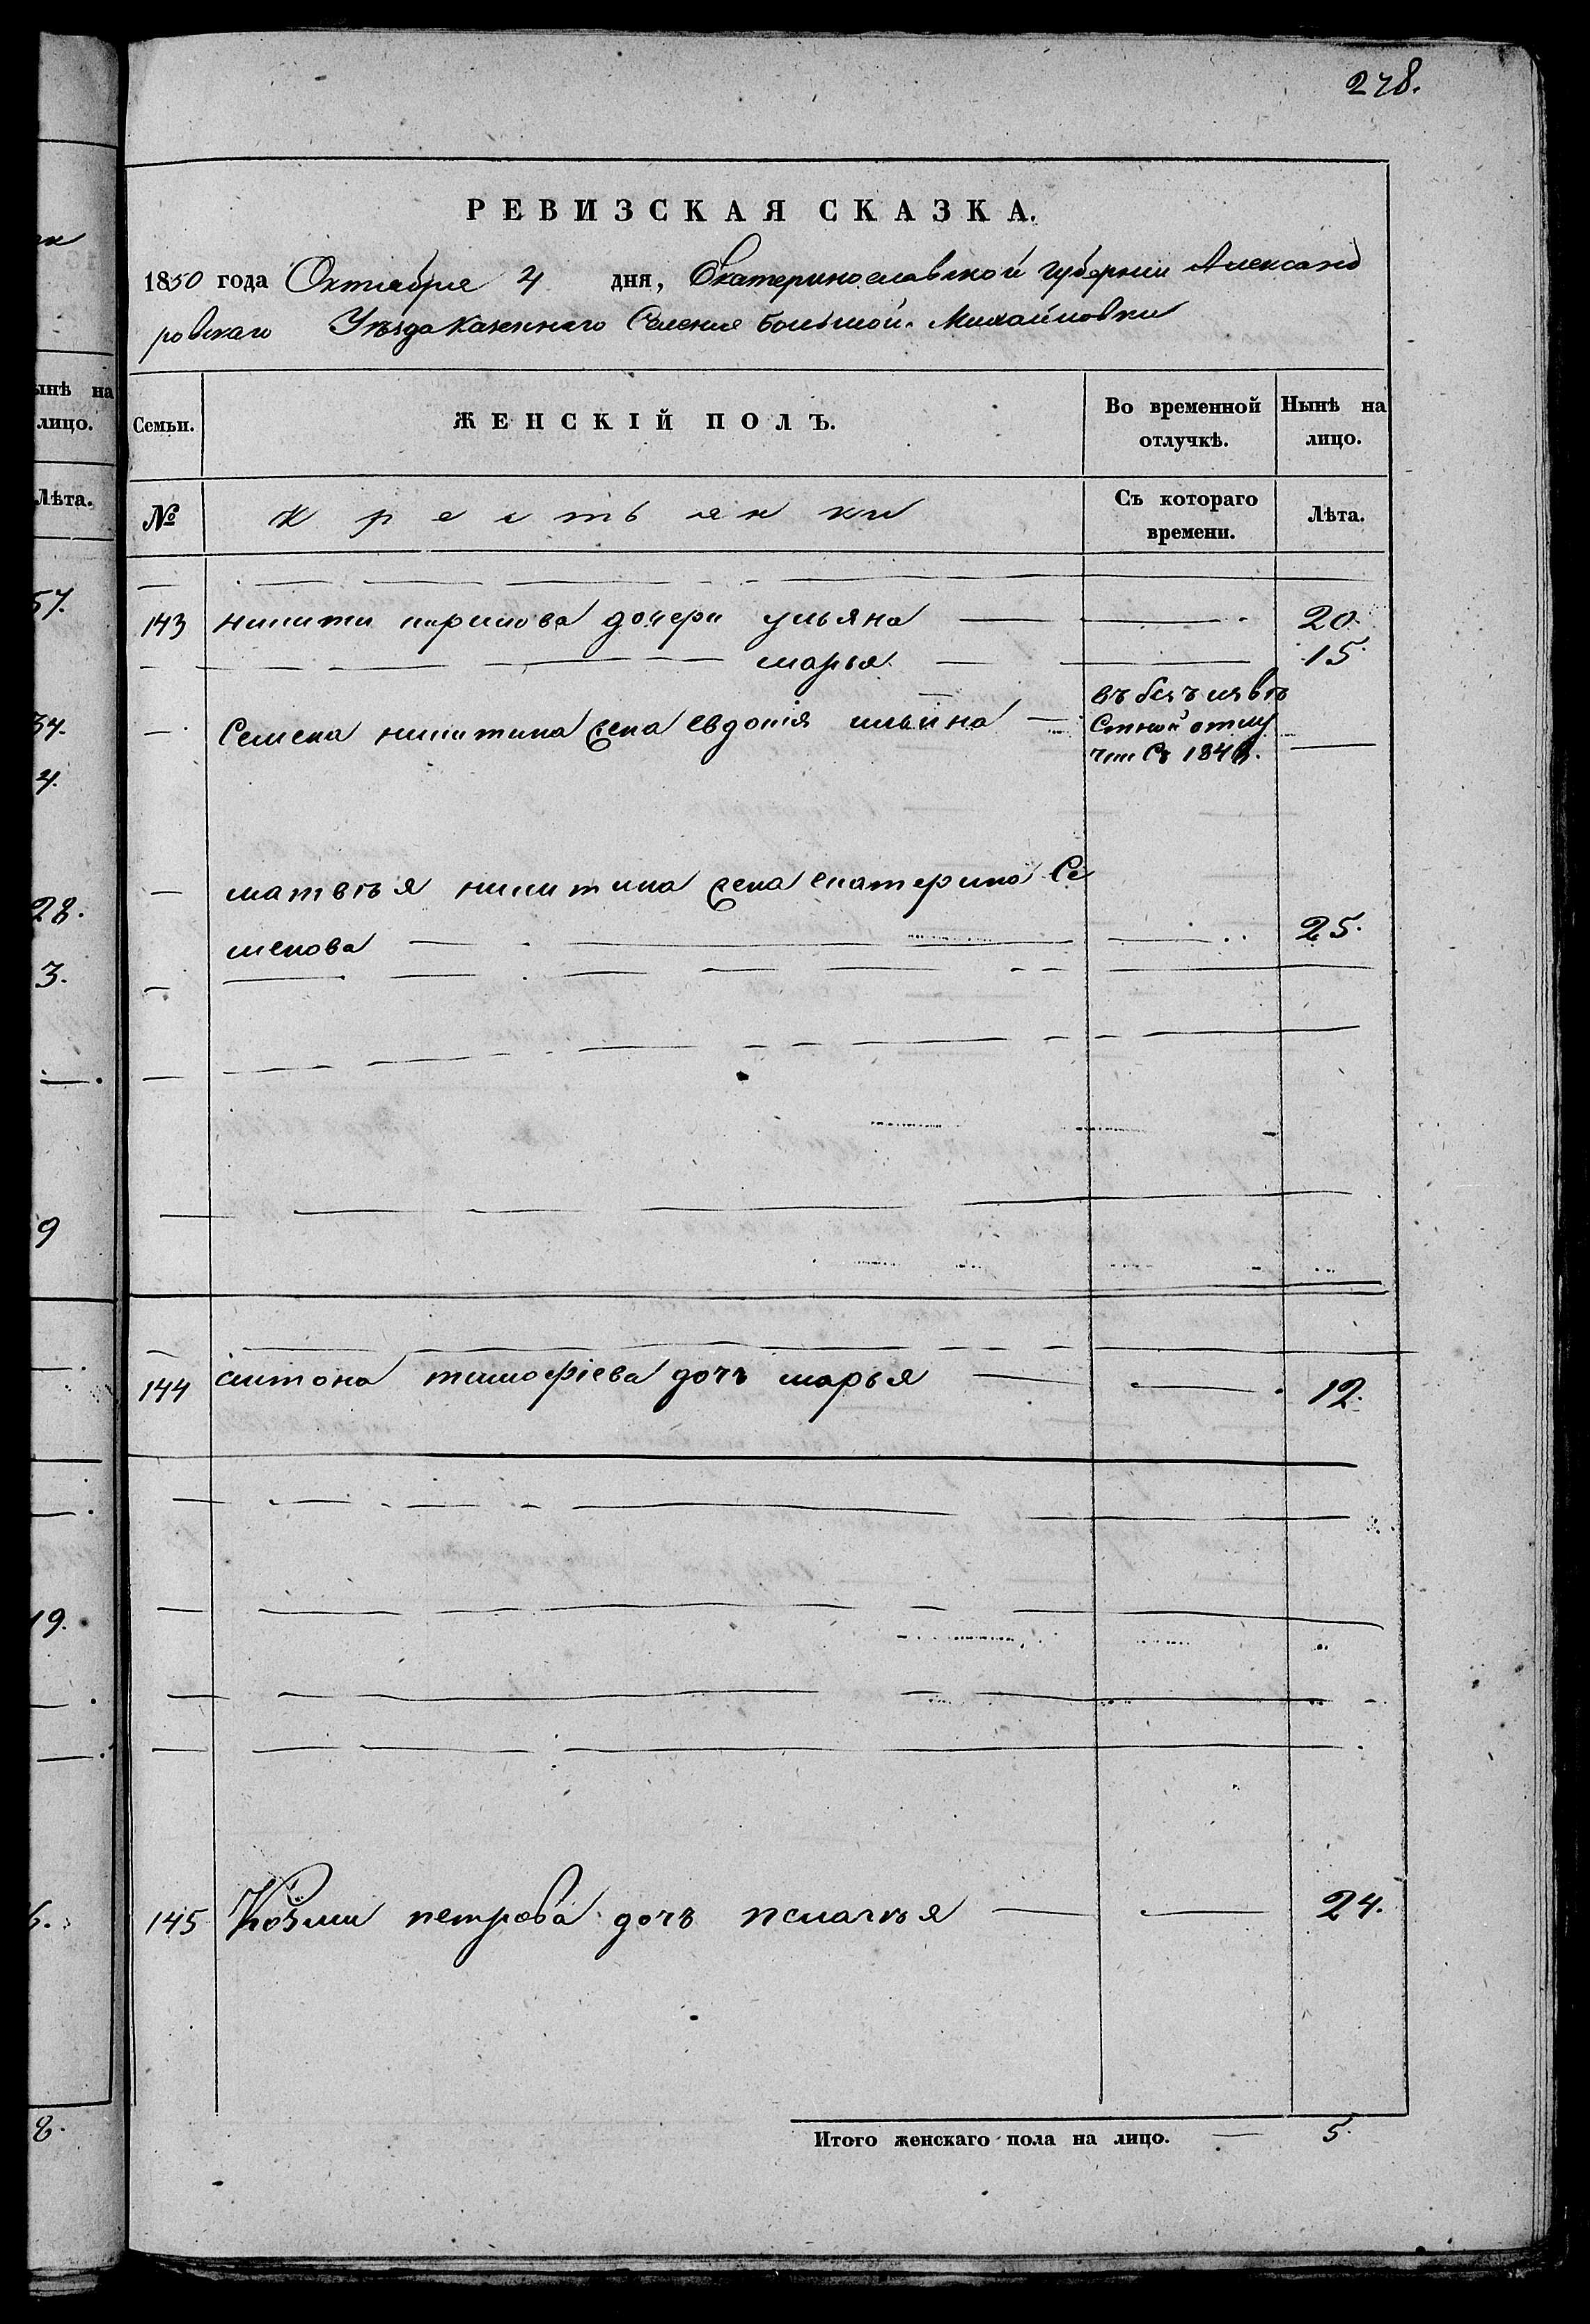 278.
РЕВИЗСКАЯ СКАЗКА.
1850 года Октября 4 дня, Екатеринославской губернии Александ
ровскаго Уѣзда Казеннаго Селения Большой Михайловки
Семьи. ЖЕНСКІЙ ПОЛЪ. Во временной отлучкѣ. Нынѣ на лицо.
№ Крестьянки Съ котораго времени. Лѣта.
143 никити кирилова дочери ульяна 20.
марья 15.
Семена никитина жена евдокія ильина въ безъизвѣ
стной отлу
чки Съ 184
матвѣя никитина жена екатерина Се
менова 25.
144 антона тимофіева дочь марья 12.
145 Козми петрова дочь 24.
Итого женскаго пола на лицо. 5.
ынѣ на
лицо.
Лѣта.
57.
34.
4.
28.
3.
9
19.
6.
8.